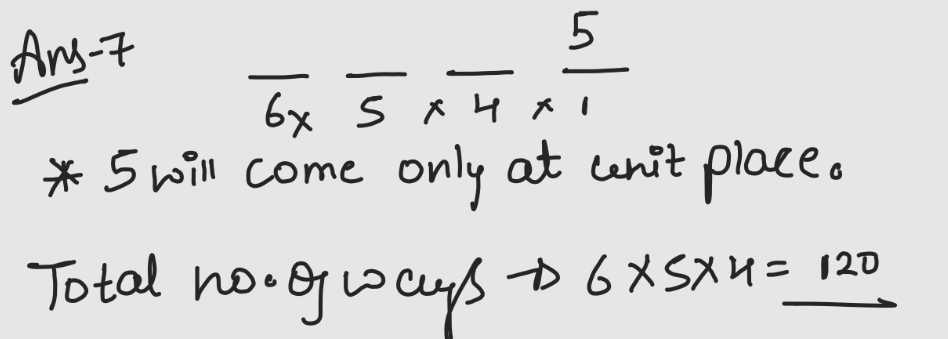 Ans-7
5
6 x 5 x 4 x 1
* 5 will come only at unit place.
Total no. of ways → 6 x 5 x 4 = 120